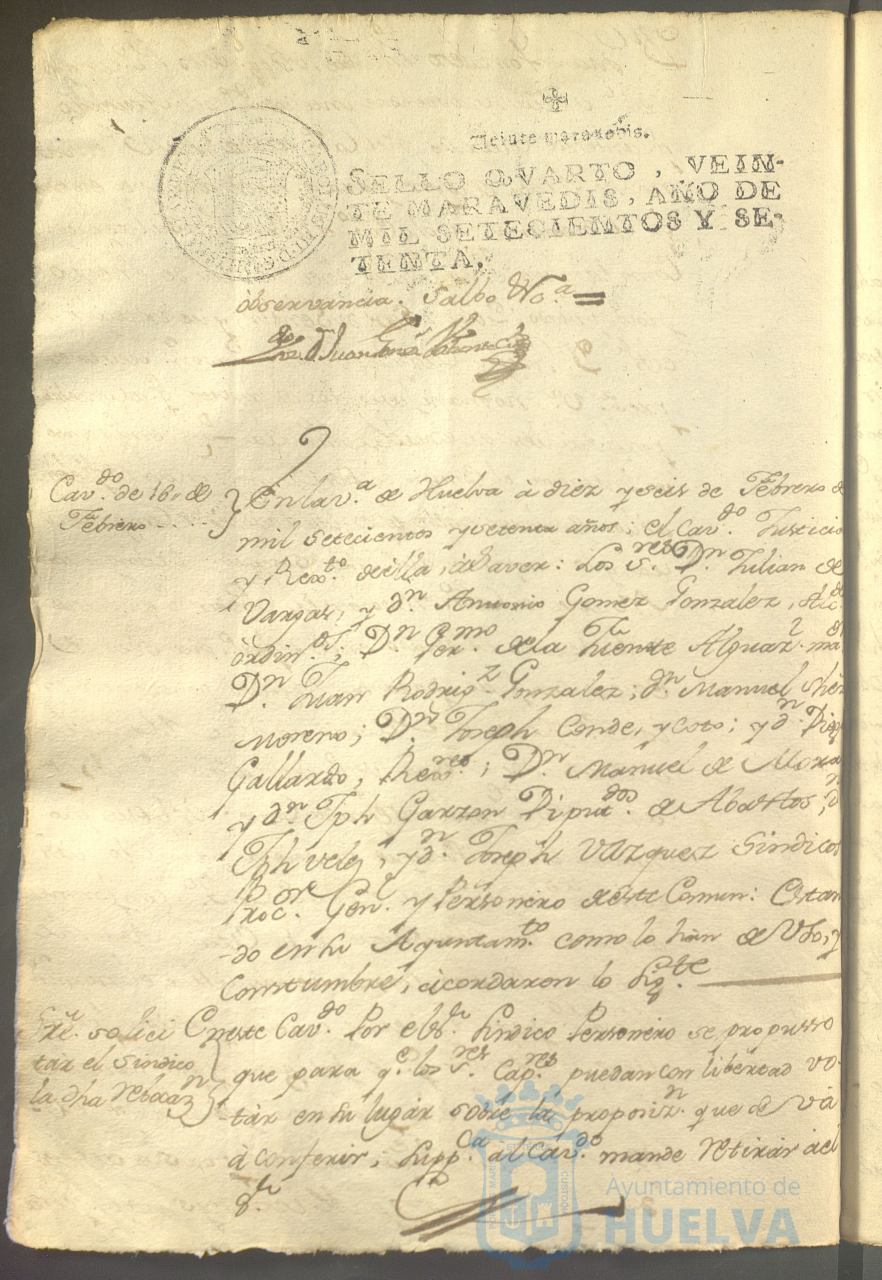 Veinte maravedis.
SELLO QVARTO, VEIN-
TE MARAVEDIS, AÑO DE
MIL SETECIENTOS Y SE-
TENTA.
observancia. Salbo
Cav.do de 16,, de
Febrero
En la v.a de Huelva à diez y seis de Febrero de
mil setecientos y setenta años; el Cav.do Justicia
y Rex.to de ella, à saver: Los S.res D.n Julian de
Vargas, y d.n Antonio Gomez Gonzalez, Alc.des
òrdin.s; D.n Ger.mo de la Fuente Alguaz.l ma.or
D.n Juan Rodrig.z Gonzalez; d.n Manuel
Moreno; D.n Joseph Conde, y Coto; y d.n Dieg
Gallardo, Rex.res; D.n Manuel de Mora
y d.n Jph Garzon Diputados de Abastos; d.n
Jph Velez, y d.n Joseph Vazquez Sindicos
Proc.or Gen.l y Personero de este Comun: Estan
-do en su Ayuntam.to como lo han de Uso, y
Constumbre, àcordaron lo sig.te
Sre. solici
tar el Sindico
la dha
En este Cav.do Por el S.r Sindico Personero se propusso
que para q.e los S.res Cap.res puedan con libertad vo-
-tár en su lugár sobre la proposiz.n que se và
à conferir; supp.ca àl Cav.do mande retirár àel
S.r
Ayuntamiento de
HUELVA